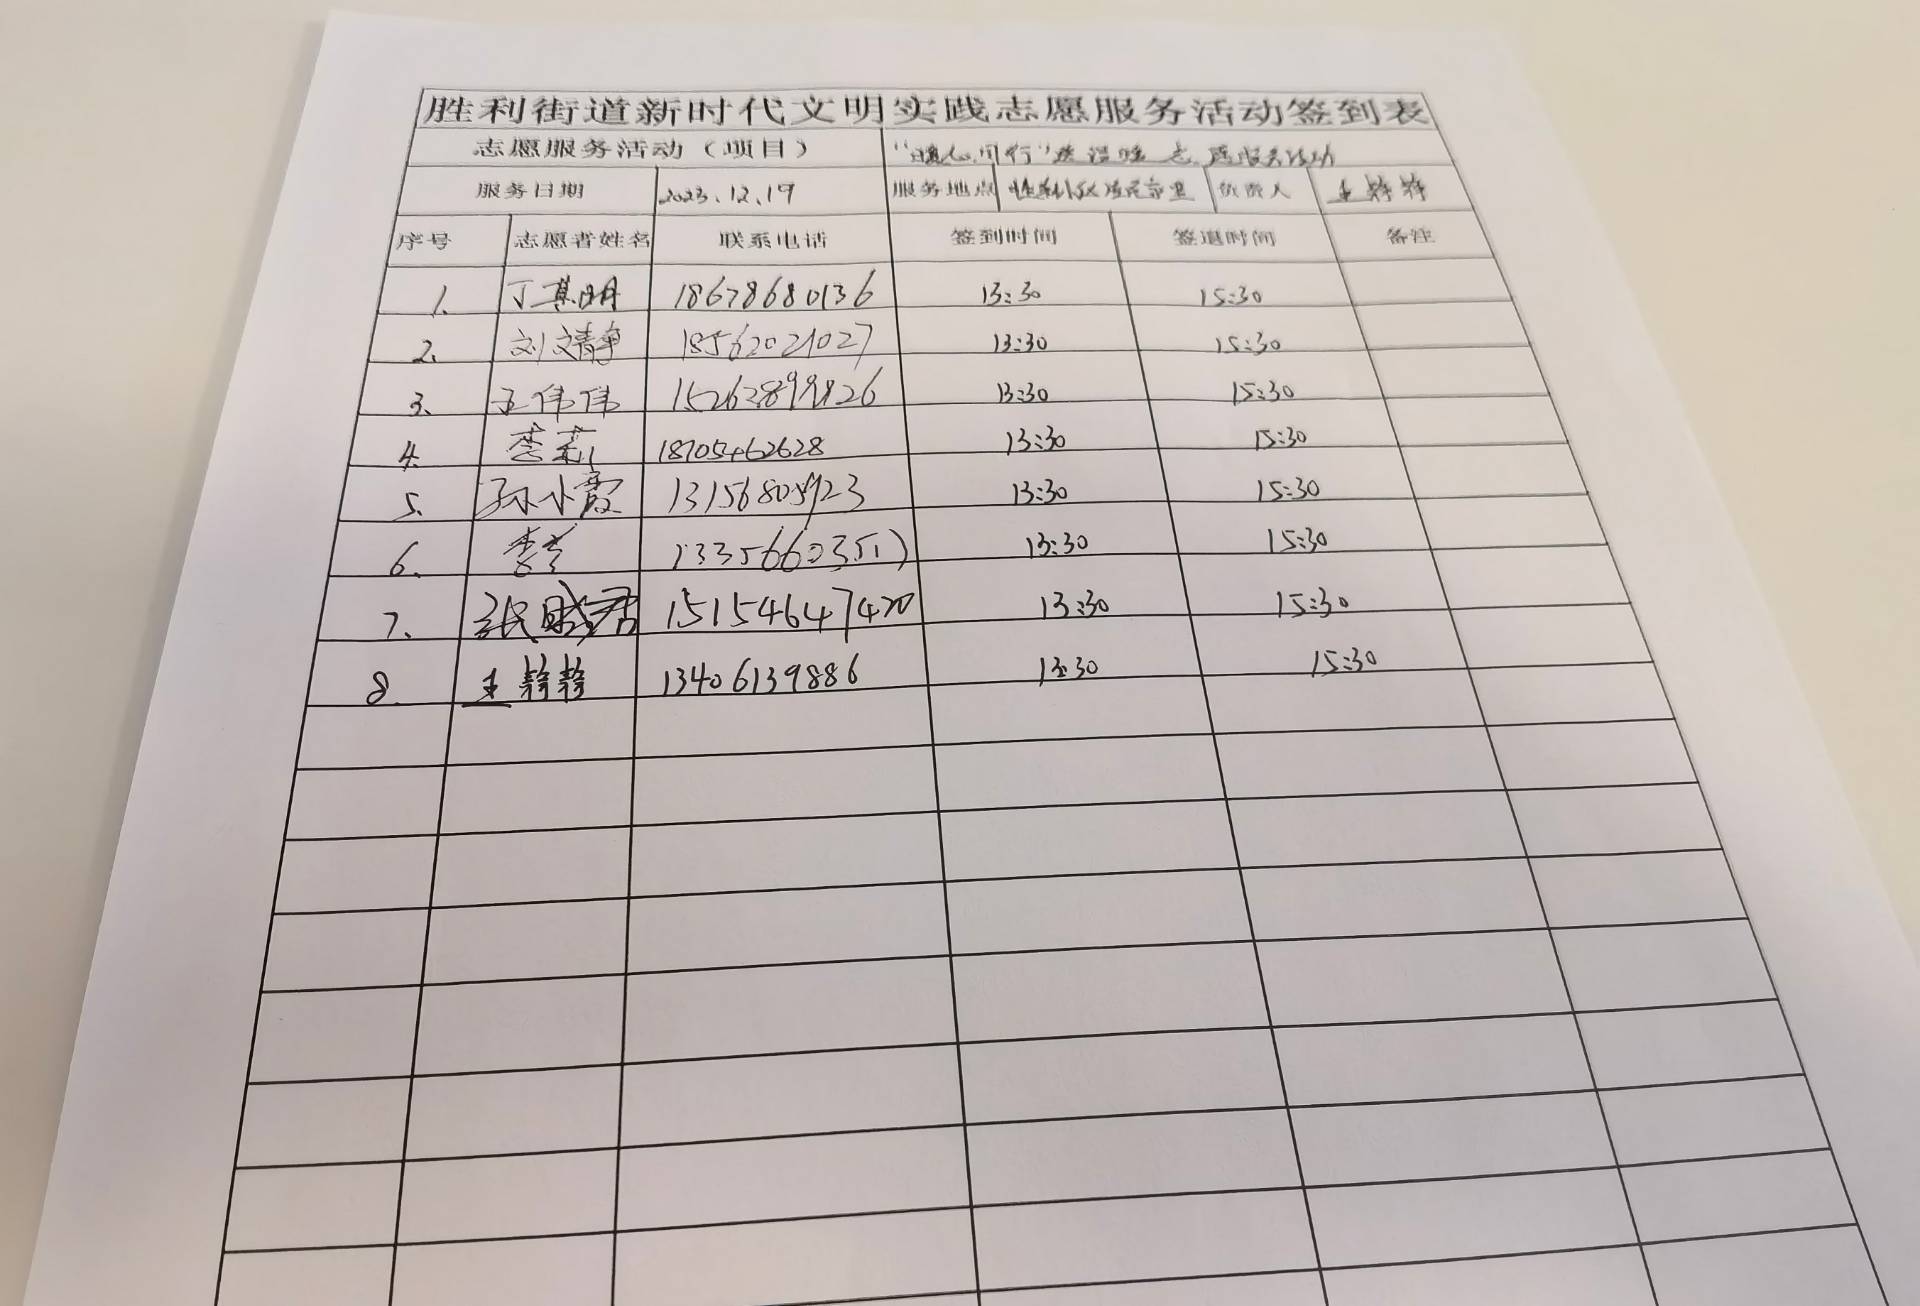 胜利街道新时代文明实践志愿服务活动签到表
志愿服务活动（项目） “暖心同行”送温暖志愿服务活动
服务日期 2023.12.19 服务地点 负责人 王静静
序号 志愿者姓名 联系电话 签到时间 签退时间 备注
1. 丁其明 18678680136 13:30 15:30
2. 刘文静 18562021027 13:30 15:30
3. 王伟伟 15262899826 13:30 15:30
4. 李莉 18705462628 13:30 15:30
5. 孙小霞 13156805923 13:30 15:30
6. 13:30 15:30
7. 张晓君 15154647420 13:30 15:30
8. 王静静 13406139886 13:30 15:30